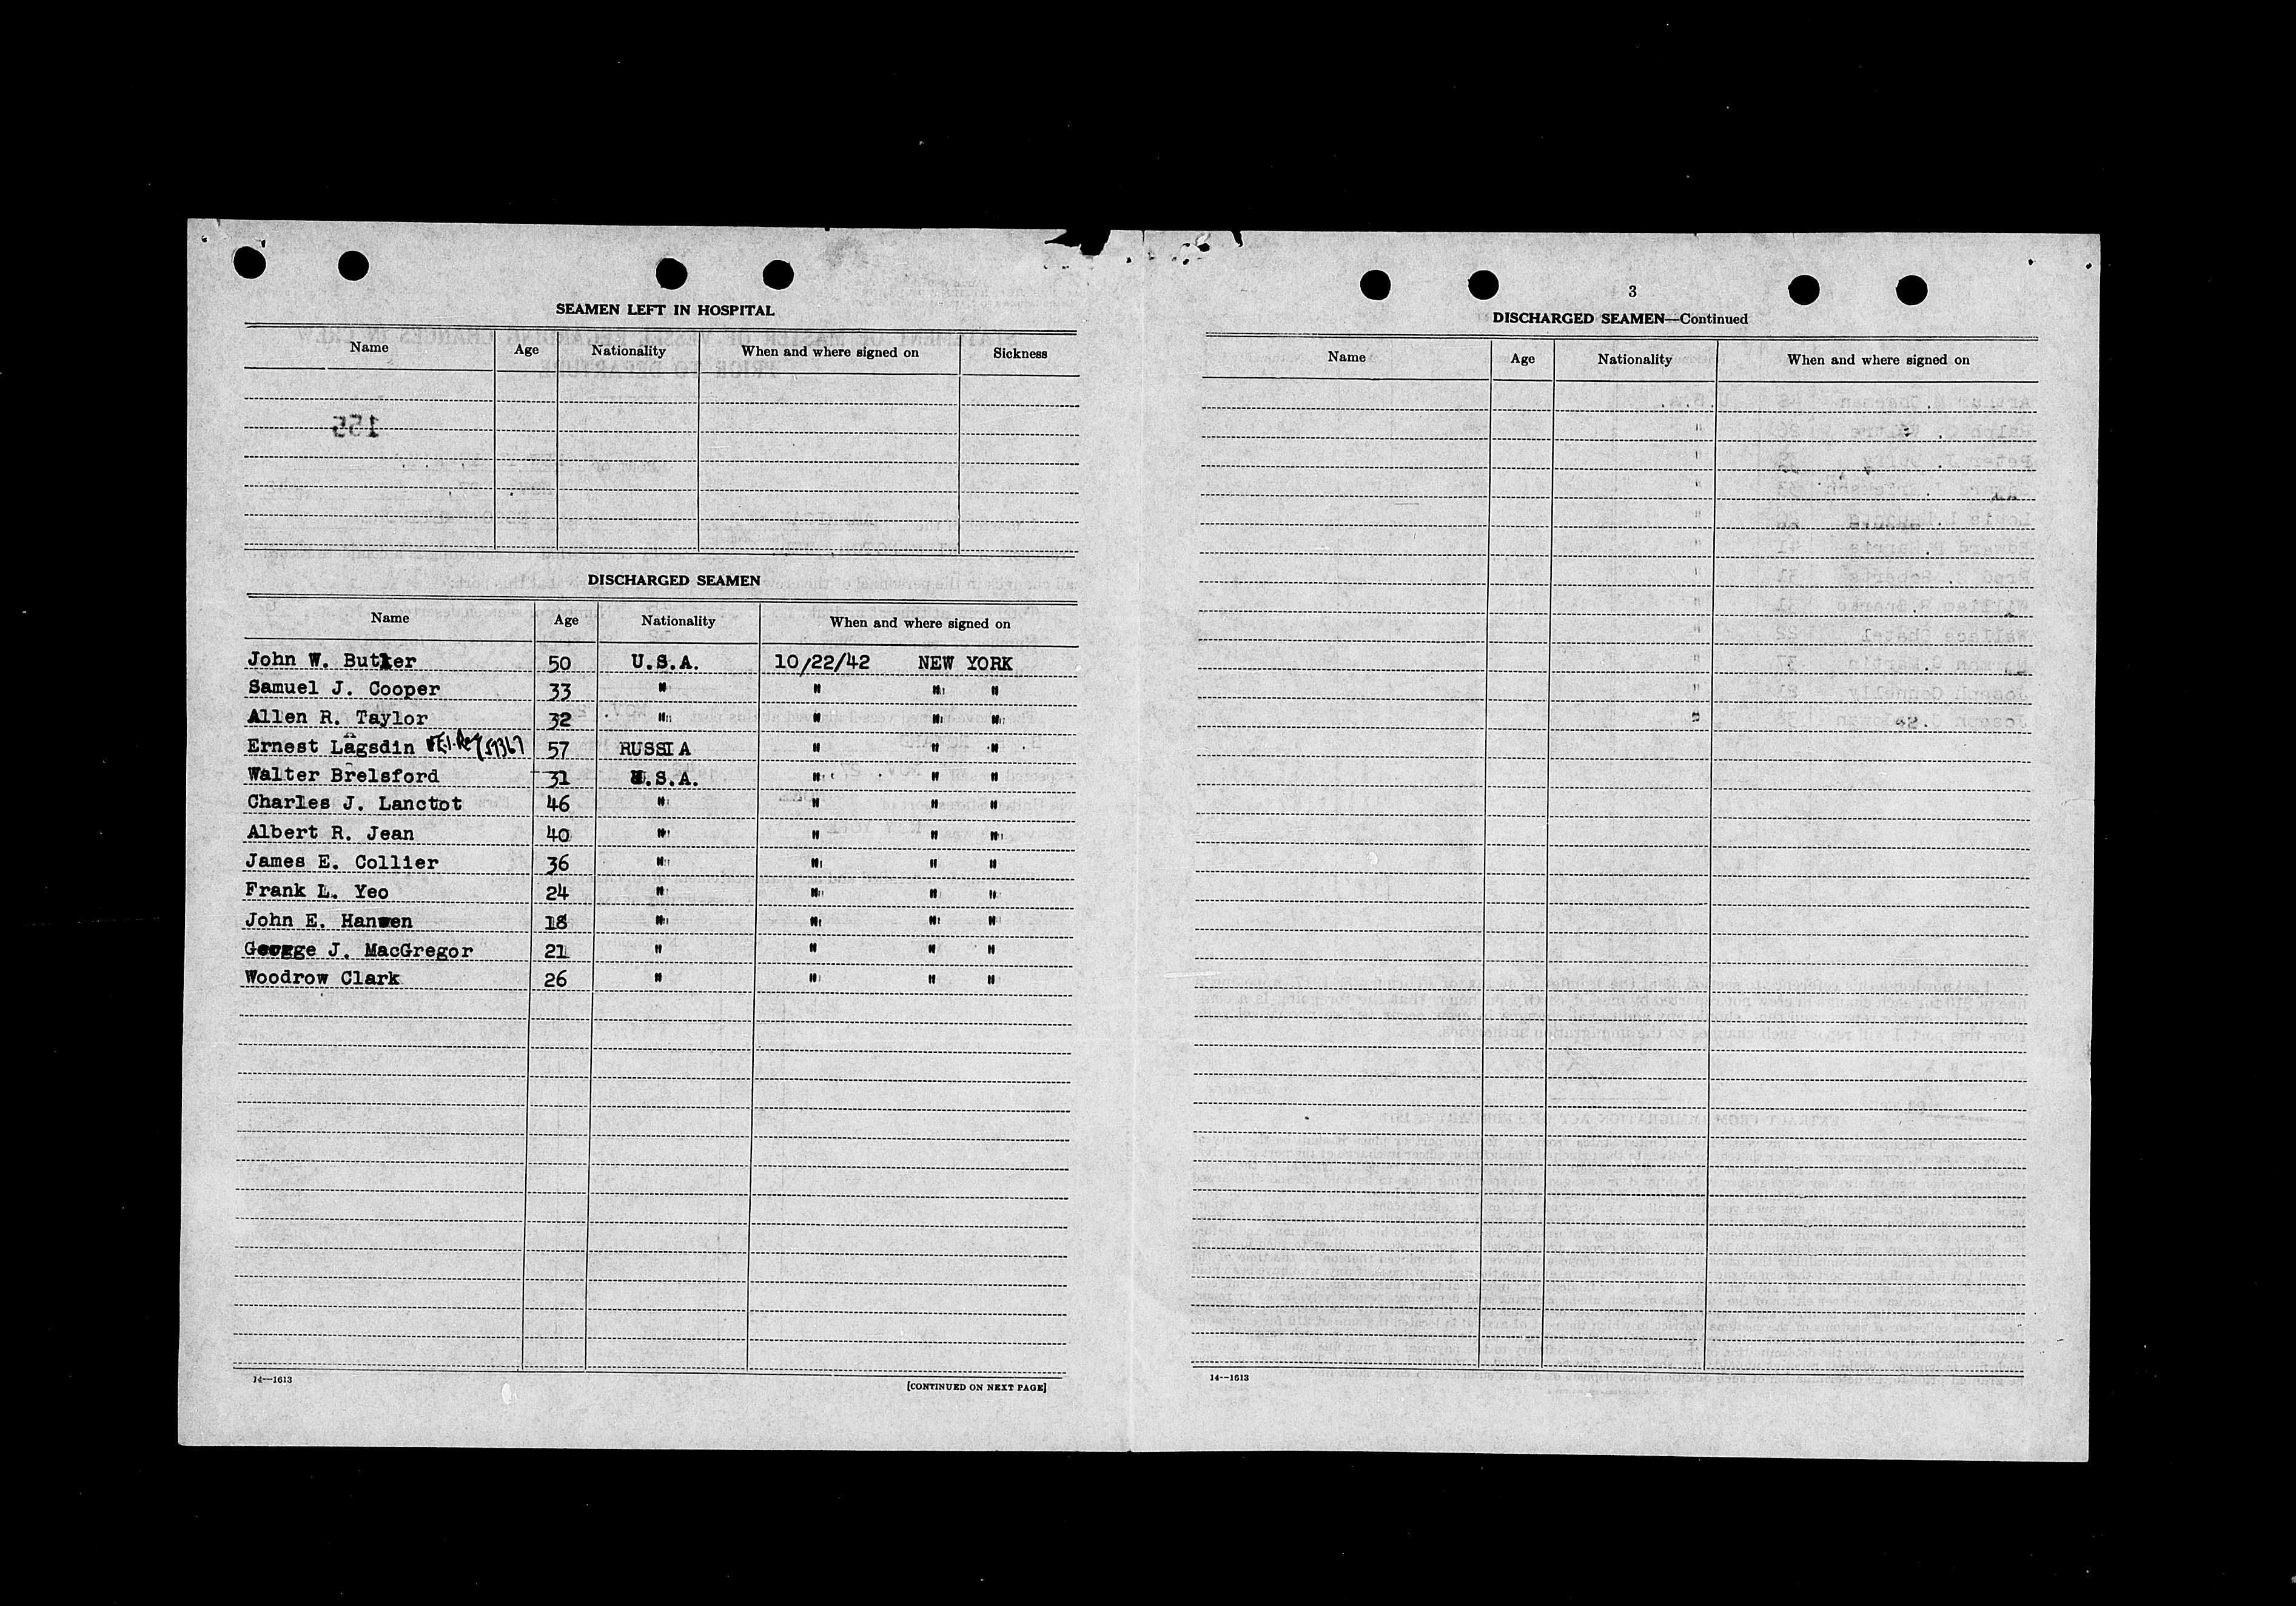 SEAMEN LEFT IN HOSPITAL
Name Age Nationality When and where signed on Sickness
155
DISCHARGED SEAMEN
Name Age Nationality When and where signed on
John W. Butler 50 U.S.A. 10/22/42 NEW YORK
Samuel J. Cooper 33 " " " "
Allen R. Taylor 32 " " " "
Ernest Lagsdin 57 RUSSIA " " "
Walter Brelsford 31 U.S.A. " " "
Charles J. Lanctot 46 " " " "
Albert R. Jean 40 " " " "
James E. Collier 36 " " " "
Frank L. Yeo 24 " " " "
John E. Hanwen 18 " " " "
George J. MacGregor 21 " " " "
Woodrow Clark 26 " " " "
14—1613
[CONTINUED ON NEXT PAGE]
3
DISCHARGED SEAMEN—Continued
Name Age Nationality When and where signed on
14—1613